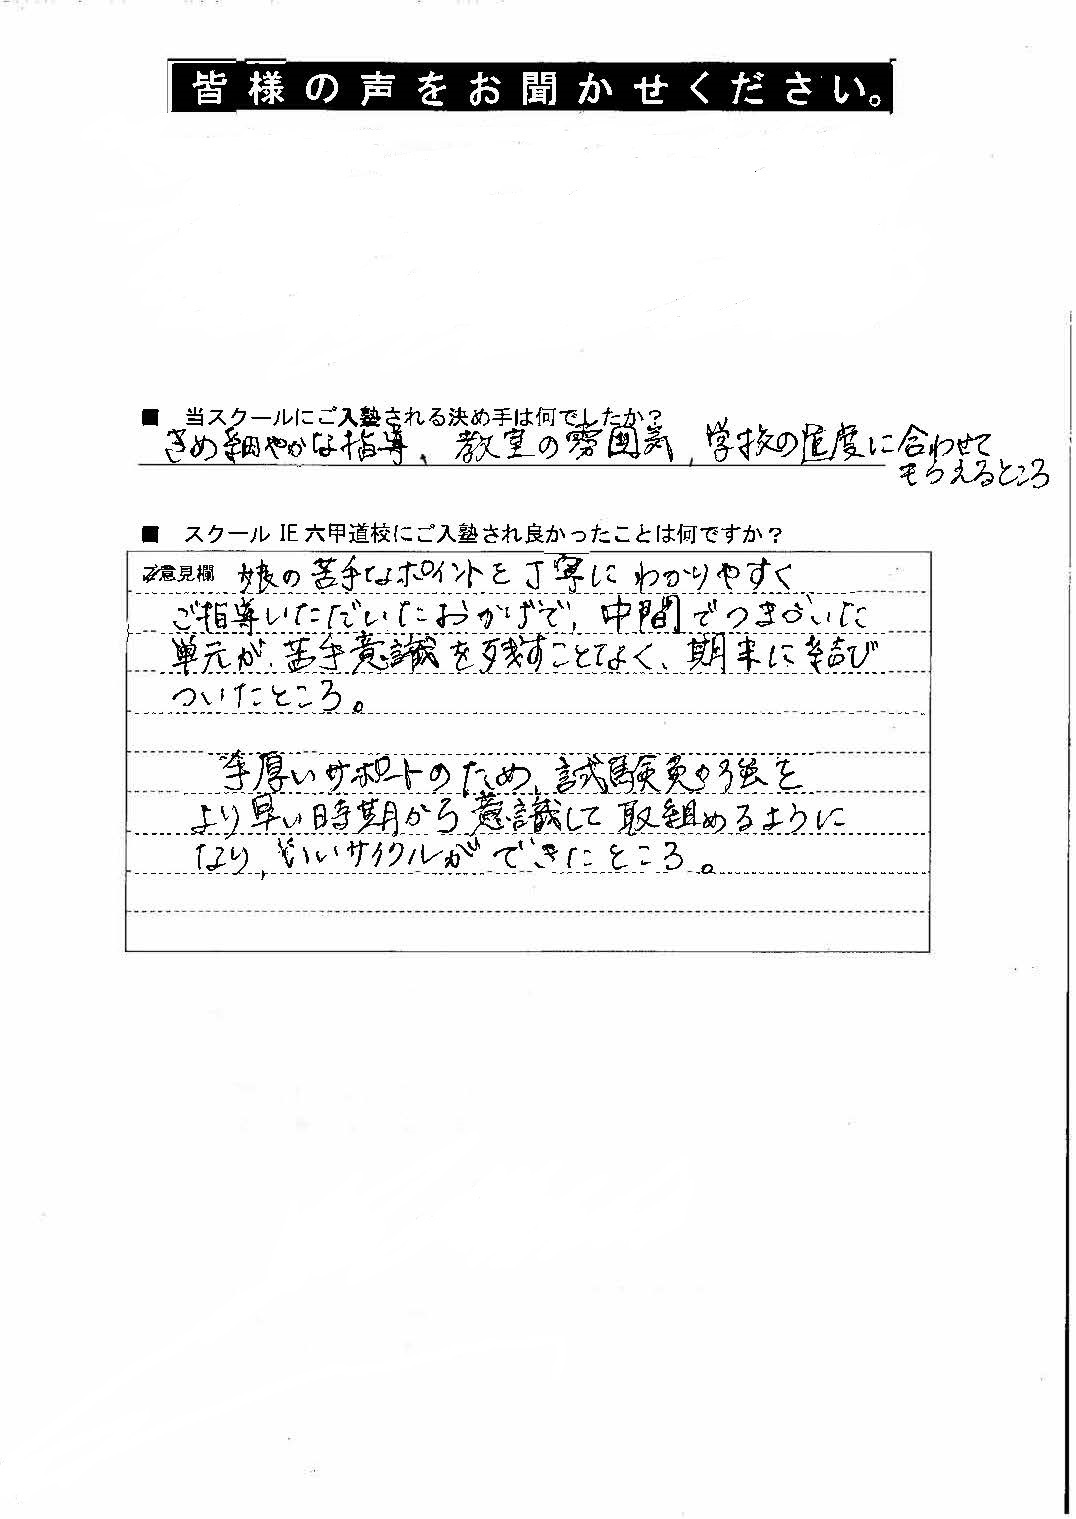 皆様の声をお聞かせください。
■ 当スクールにご入塾される決め手は何でしたか?
きめ細やかな指導、教室の雰囲気、学校の進度に合わせて
もらえるところ
■ スクールIE六甲道校にご入塾され良かったことは何ですか?
ご意見欄 娘の苦手なポイントを丁寧にわかりやすく
ご指導いただいたおかげで、中間でつまづいた
単元が、苦手意識を残すことなく、期末に結び
ついたところ。
手厚いサポートのため、試験勉強を
より早い時期から意識して取組めるように
なり、いいサイクルができたところ。